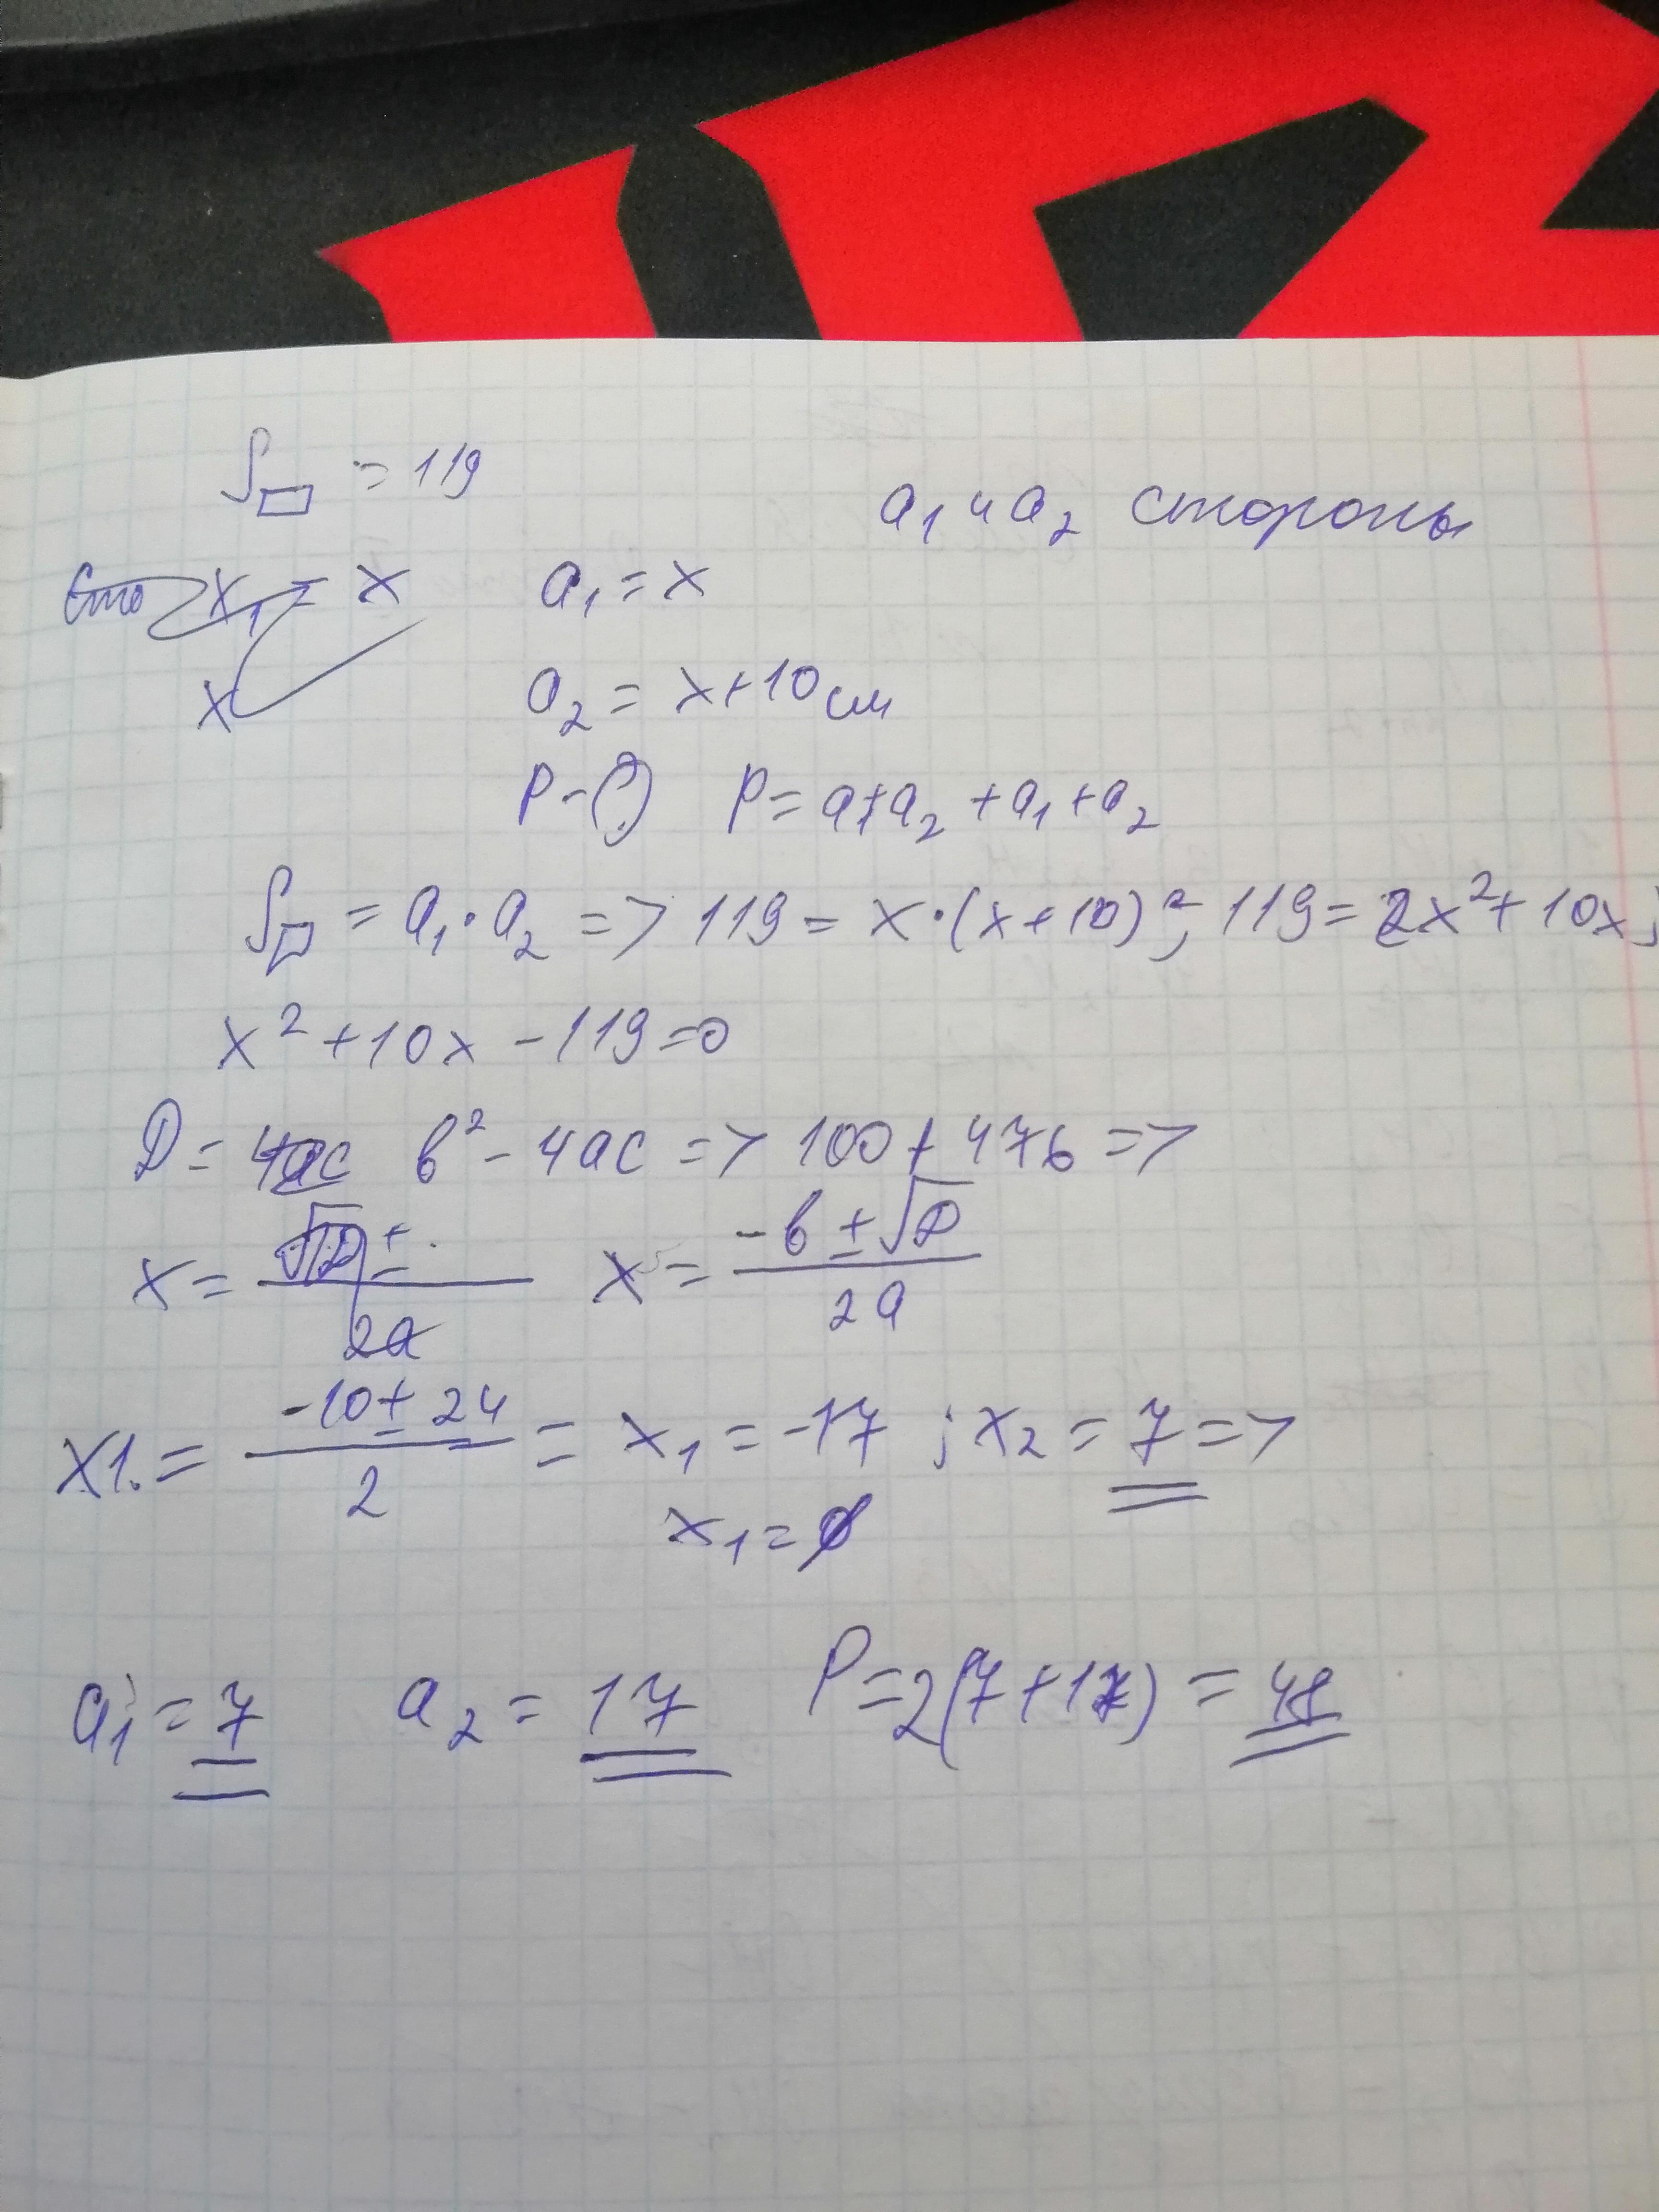 S▭ = 119
a₁ и a₂ стороны
x₁ = x a₁ = x
x a₂ = x+10 см
P - ? P = a₁+a₂ + a₁ + a₂
S▭ = a₁ · a₂ => 119 = x·(x+10) ; 119 = x² + 10x ;
x² + 10x - 119 = 0
D = 4ac b² - 4ac => 100 + 476 =>
x = √D ± / 2a x = -b ± √D / 2a
x1. = -10 ± 24 / 2 = x₁ = -17 ; x₂ = 7 =>
x₁ = ∅
a₁ = 7 a₂ = 17 P = 2(7+17) = 48